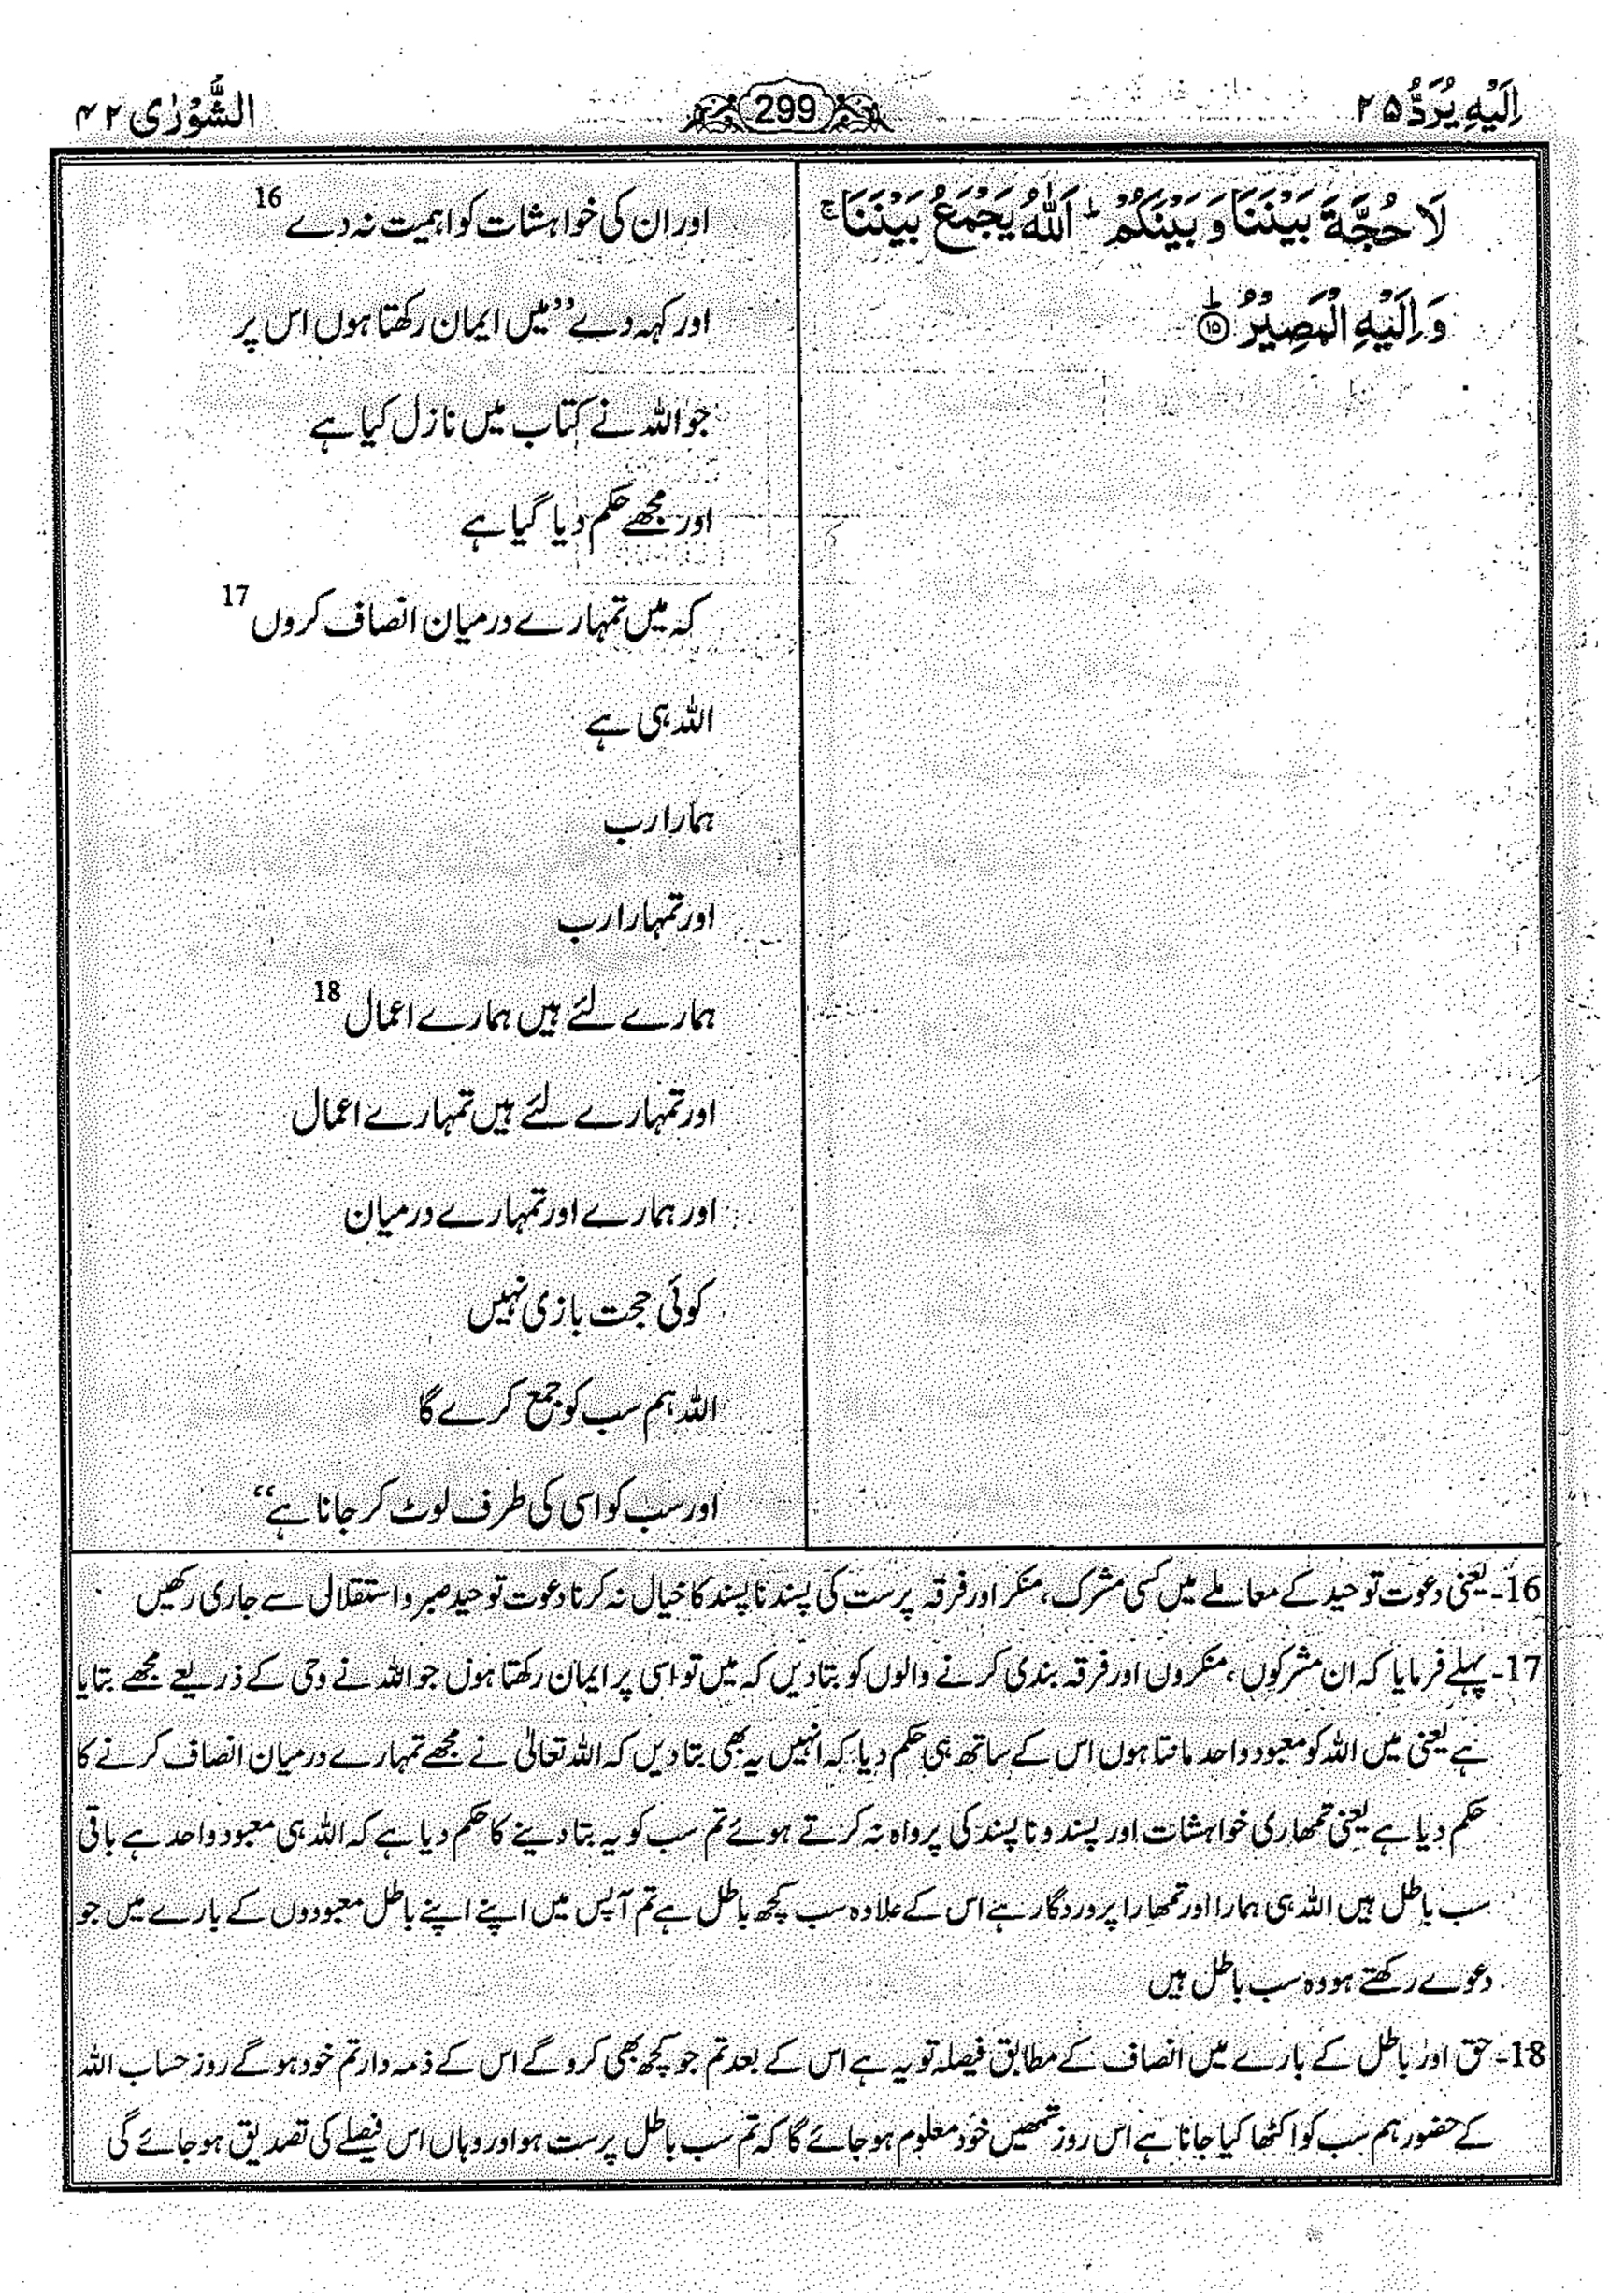 اِلَيْهِ يُرَدُّ ۲۵
299
الشُّوْرٰى ۴۲
لَا حُجَّةَ بَيْنَنَا وَ بَيْنَكُمْ ؕ اَللّٰهُ يَجْمَعُ بَيْنَنَا ۚ
وَ اِلَيْهِ الْمَصِيْرُ ؕ ۱۵
اور ان کی خواہشات کو اہمیت نہ دے 16
اور کہہ دے ”میں ایمان رکھتا ہوں اس پر
جو اللہ نے کتاب میں نازل کیا ہے
اور مجھے حکم دیا گیا ہے
کہ میں تمہارے درمیان انصاف کروں 17
اللہ ہی ہے
ہمارا رب
اور تمہارا رب
ہمارے لئے ہیں ہمارے اعمال 18
اور تمہارے لئے ہیں تمہارے اعمال
اور ہمارے اور تمہارے درمیان
کوئی حجت بازی نہیں
اللہ ہم سب کو جمع کرے گا
اور سب کو اسی کی طرف لوٹ کر جانا ہے“
16- یعنی دعوت توحید کے معاملے میں کسی مشرک، منکر اور فرقہ پرست کی پسند ناپسند کا خیال نہ کرنا دعوت توحید صبر و استقلال سے جاری رکھیں
17- پہلے فرمایا کہ ان مشرکوں، منکروں اور فرقہ بندی کرنے والوں کو بتا دیں کہ میں تو اسی پر ایمان رکھتا ہوں جو اللہ نے وحی کے ذریعے مجھے بتایا
ہے یعنی میں اللہ کو معبود واحد مانتا ہوں اس کے ساتھ ہی حکم دیا کہ انہیں یہ بھی بتا دیں کہ اللہ تعالیٰ نے مجھے تمہارے درمیان انصاف کرنے کا
حکم دیا ہے یعنی تمھاری خواہشات اور پسند و ناپسند کی پرواہ نہ کرتے ہوئے تم سب کو یہ بتا دینے کا حکم دیا ہے کہ اللہ ہی معبود واحد ہے باقی
سب باطل ہیں اللہ ہی ہمارا اور تمھارا پروردگار ہے اس کے علاوہ سب کچھ باطل ہے تم آپس میں اپنے اپنے باطل معبودوں کے بارے میں جو
دعوے رکھتے ہو وہ سب باطل ہیں
18- حق اور باطل کے بارے میں انصاف کے مطابق فیصلہ تو یہ ہے اس کے بعد تم جو کچھ بھی کرو گے اس کے ذمہ دار تم خود ہو گے روز حساب اللہ
کے حضور ہم سب کو اکٹھا کیا جانا ہے اس روز تمھیں خود معلوم ہو جائے گا کہ تم سب باطل پرست ہو اور وہاں اس فیصلے کی تصدیق ہو جائے گی